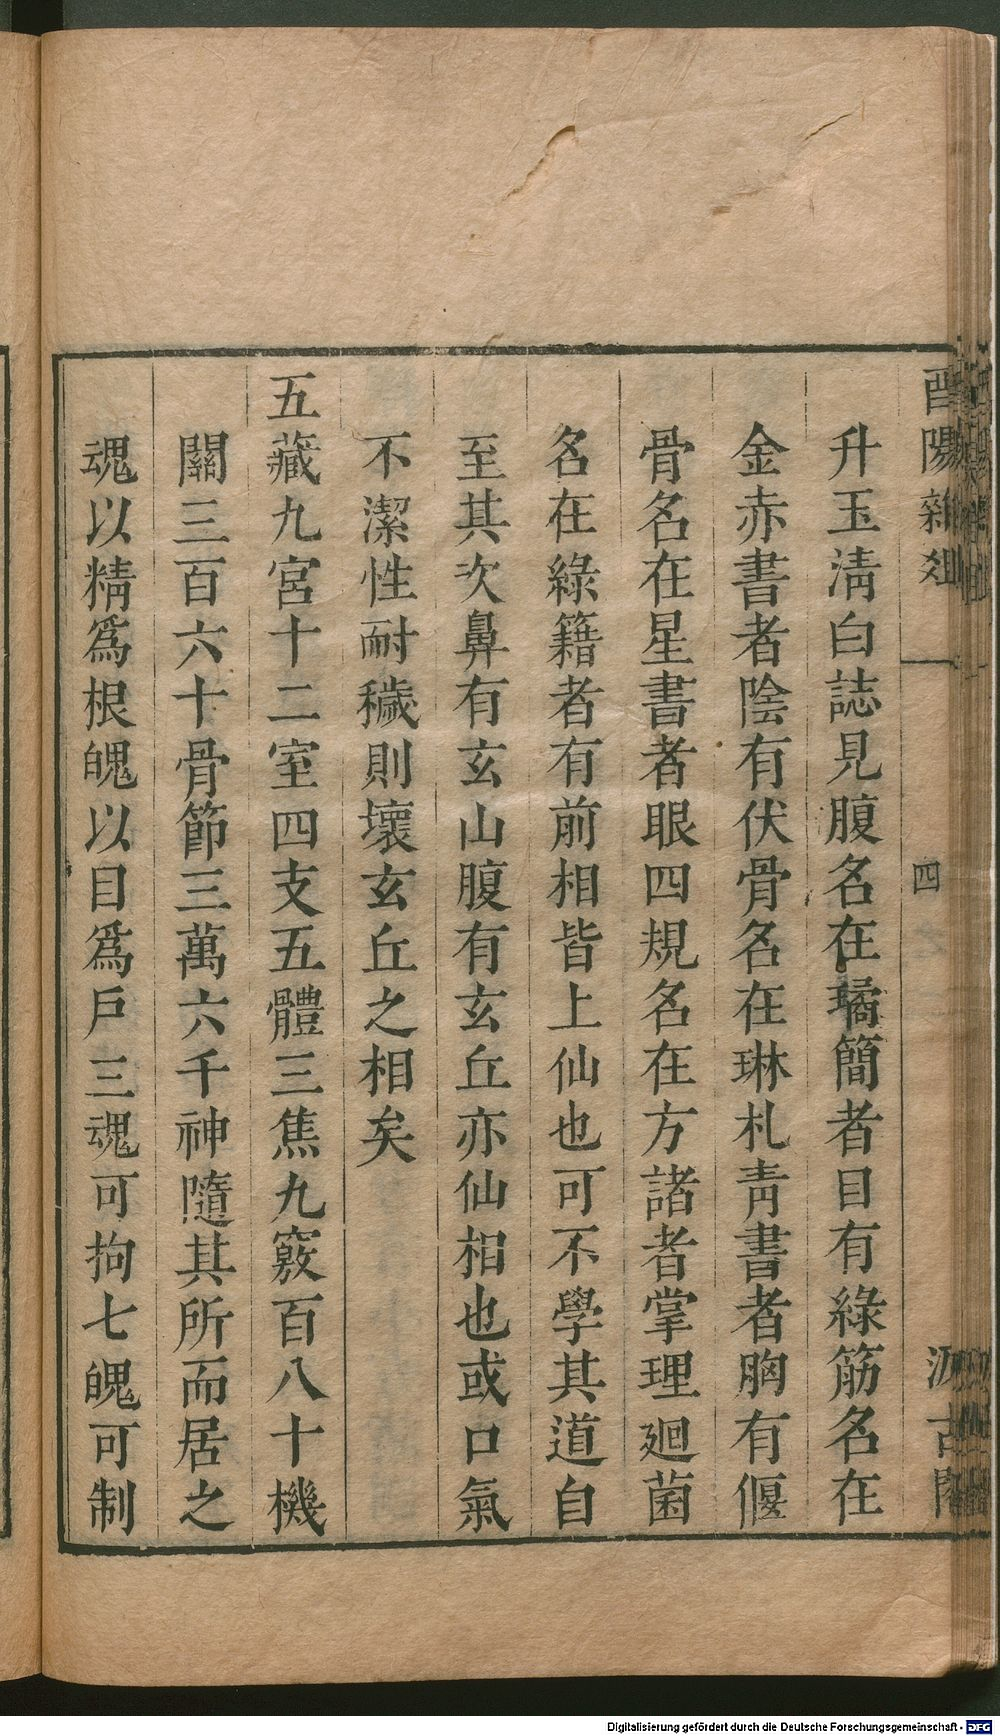 酉陽雜爼
四
汲古閣
升玉淸白誌見腹名在璚簡者目有綠筋名在
金赤書者陰有伏骨名在琳札靑書者胸有偃
骨名在星書者眼四規名在方諸者掌理廻菌
名在綠籍者有前相皆上仙也可不學其道自
至其次鼻有玄山腹有玄丘亦仙相也或口氣
不潔性耐穢則壞玄丘之相矣
五藏九宮十二室四支五體三焦九竅百八十機
關三百六十骨節三萬六千神隨其所而居之
魂以精爲根魄以目爲戶三魂可拘七魄可制
Digitalisierung gefördert durch die Deutsche Forschungsgemeinschaft - DFG